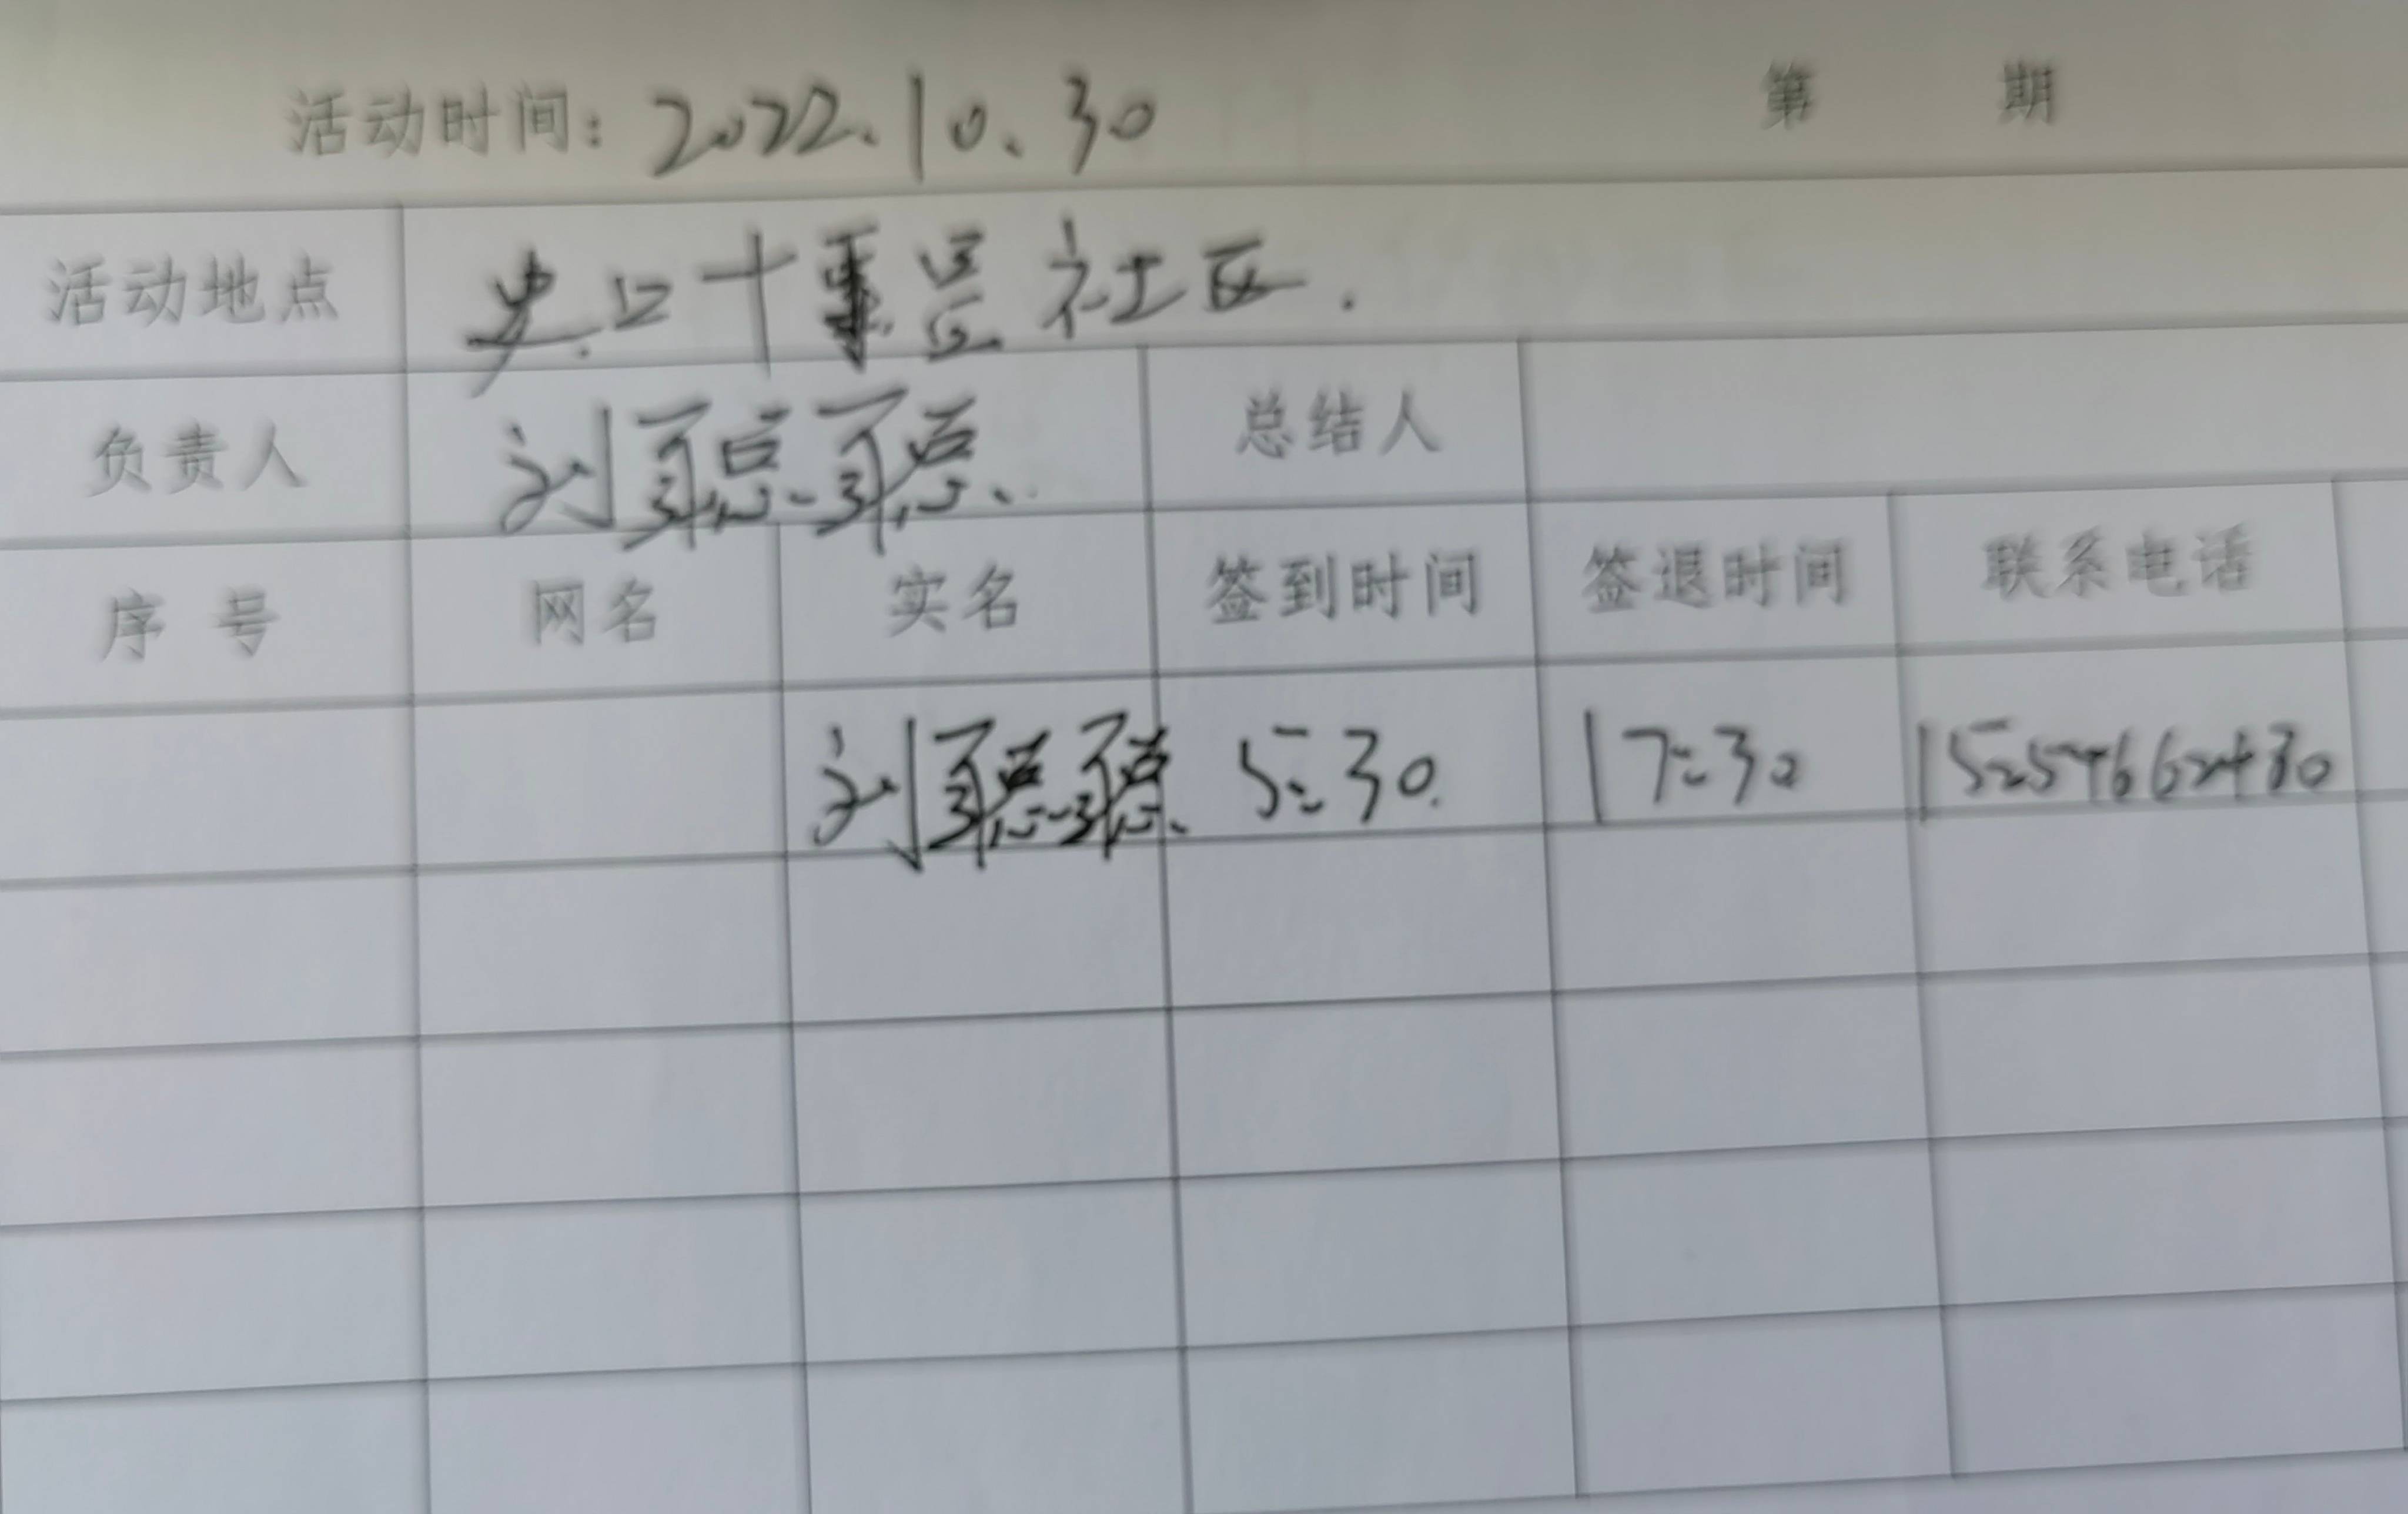 活动时间：2022.10.30 第 期
活动地点 史口十里堡社区.
负责人 刘聪聪 总结人
序 号 网名 实名 签到时间 签退时间 联系电话
刘聪聪 5:30 17:30